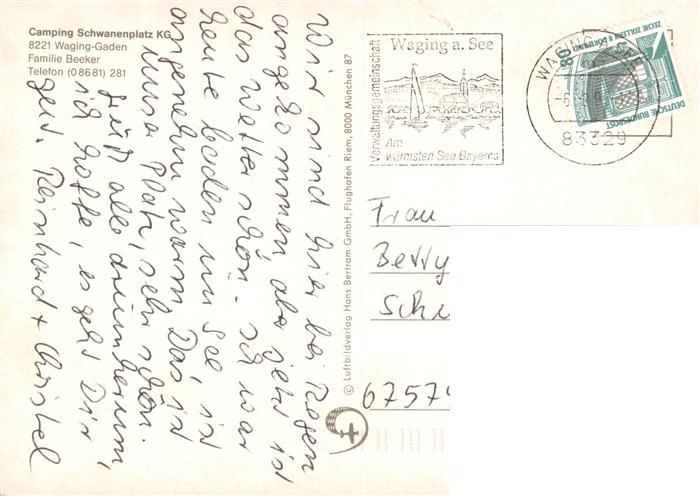 Camping Schwanenplatz KG
8221 Waging-Gaden
Familie Beeker
Telefon (0 86 81) 281
Wir sind hier bei Regen
angekommen aber jetzt ist
das Wetter schön. Ich war
heute baden im See, ist
angenehm warm. Das ist
unser Platz, sehr schön.
alles drumherum,
ich hoffe, es geht Dir
gut. Reinhard + Christel
© Luftbildverlag Hans Bertram GmbH, Flughafen Riem, 8000 München 87
Verwaltungsgemeinschaft
Waging a. See
Am
wärmsten See Bayerns
WAGING A. SEE
83329
80
ZECHE ZOLLERN II DORTMUND
DEUTSCHE BUNDESPOST
Frau
Betty
Sche
67574